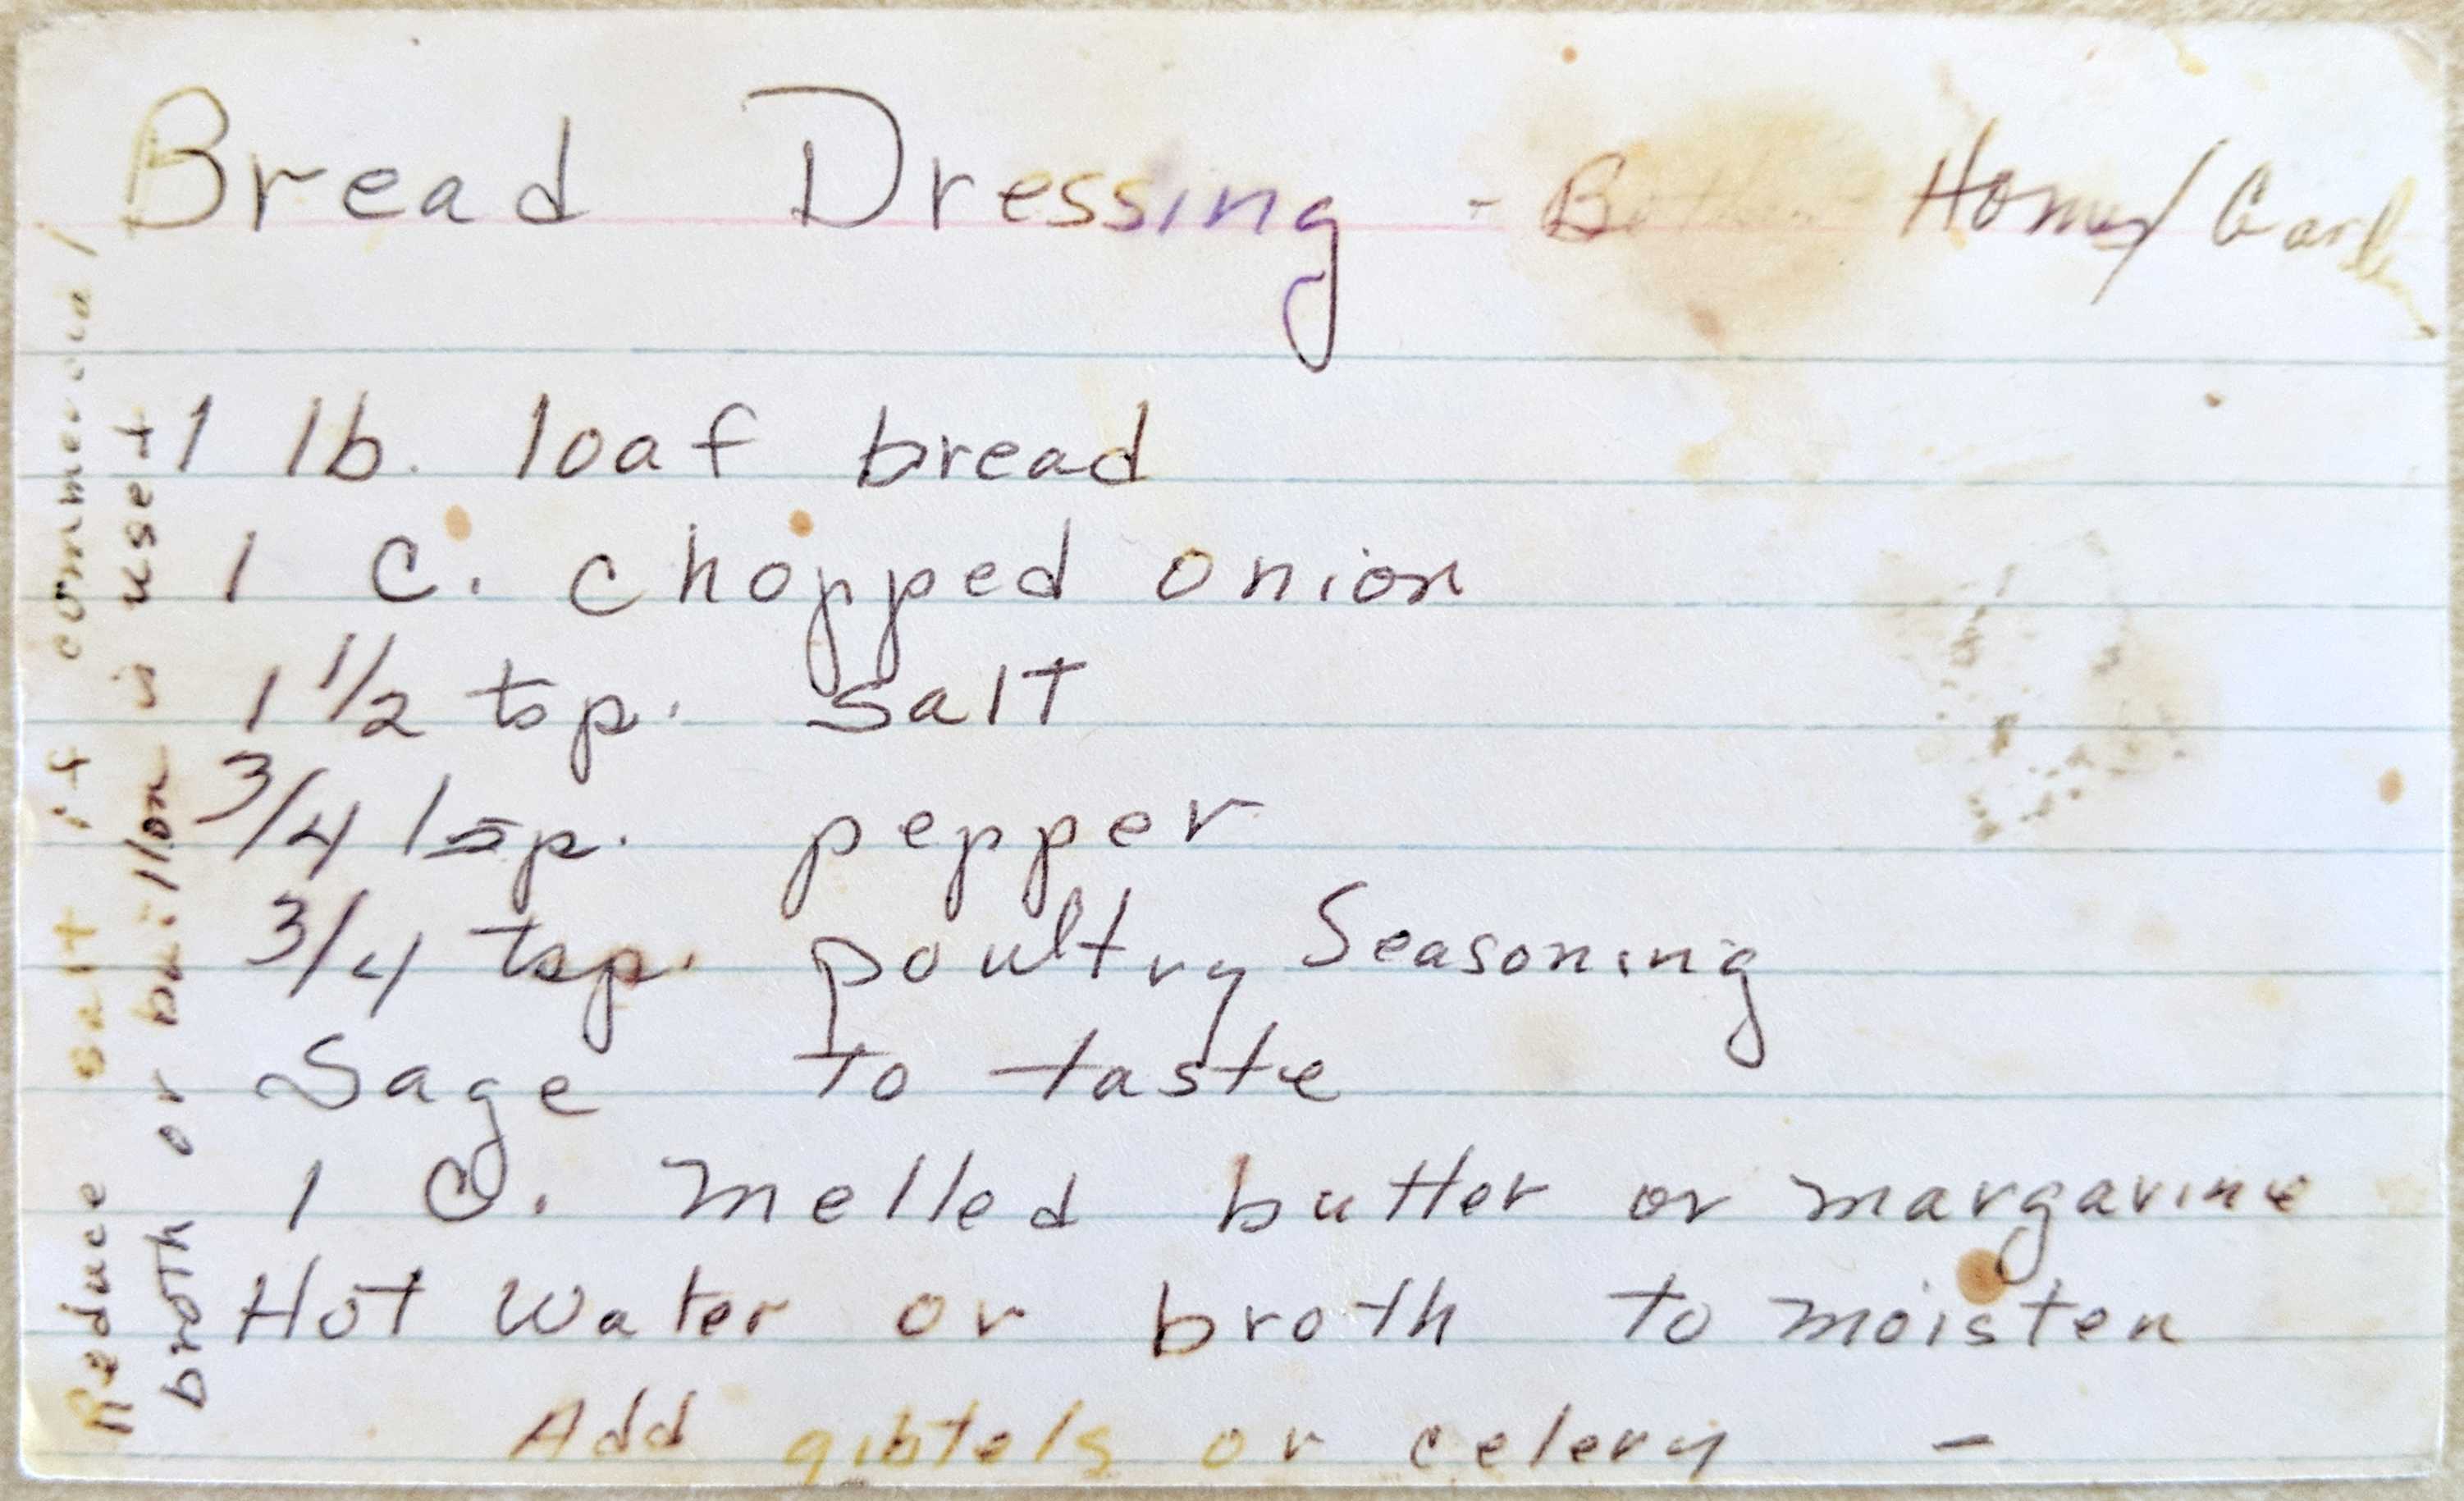 Bread Dressing - Home/Gard
1 lb. loaf bread
1 c. chopped onion
1 1/2 tsp. salt
3/4 tsp. pepper
3/4 tsp. poultry Seasoning
Sage to taste
1 c. melted butter or margarine
Hot Water or broth to moisten
Add gibtels or celery -
Reduce salt if commercial
broth or boullon is used